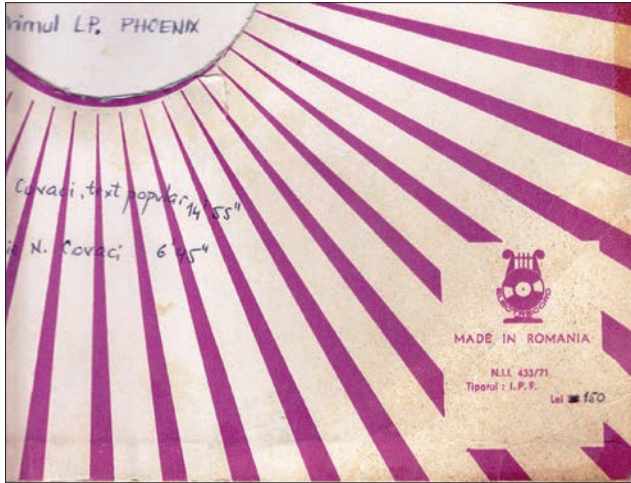 Primul LP. PHOENIX
Covaci, text popular 14'55"
ie N. Covaci 6'45"
ELECTRECORD
MADE IN ROMANIA
N.I.I. 433/71
Tiparul : I. P. F.
Lei 150